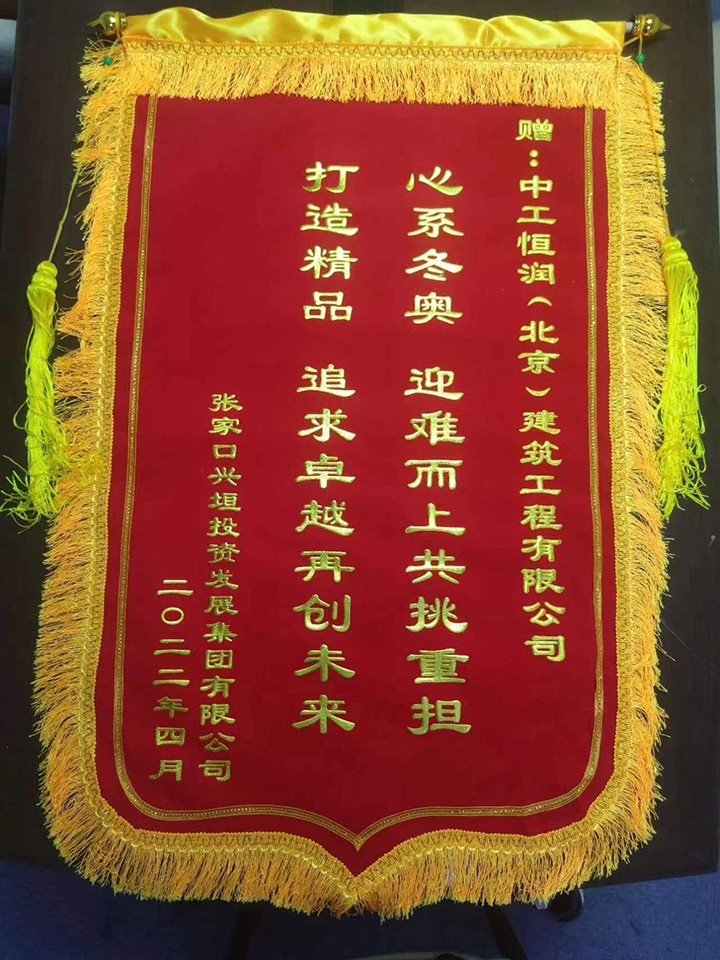 赠：中工恒润（北京）建筑工程有限公司
心系冬奥 迎难而上共挑重担
打造精品 追求卓越再创未来
张家口兴垣投资发展集团有限公司
二〇二二年四月